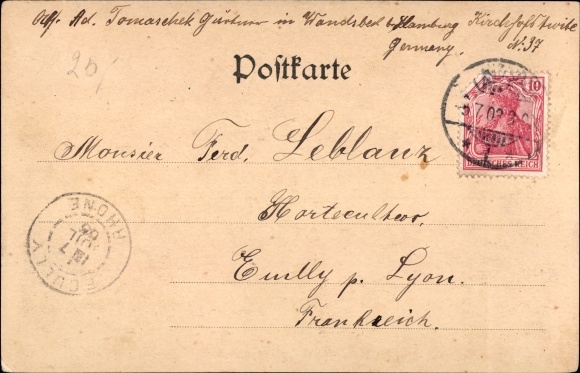 Ad. Tomaschek Gärtner in Wandsbek b/Hamburg Kirchhofstwite
Germany. No. 37
2b/
Postkarte
10
DEUTSCHES REICH
Monsier Ferd. Leblanz
Hortecultvor,
Eeully p. Lyon.
Frankreich.
ECULLY
RHONE
7
JUIL